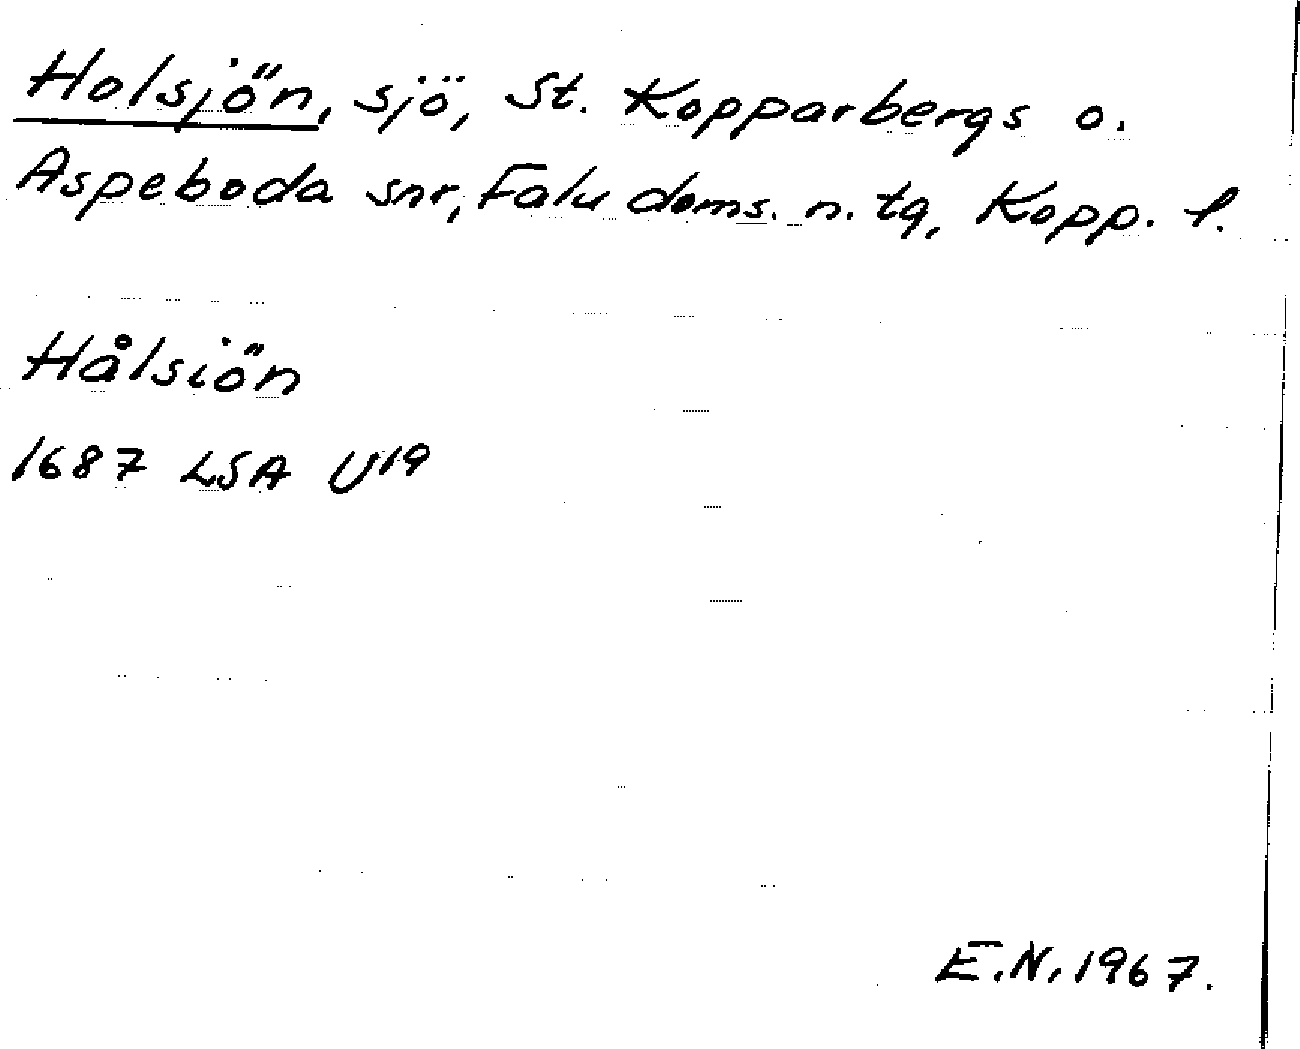 Holsjön, sjö, St. Kopparbergs o.
Aspeboda snr, Falu doms. n. tg, Kopp. l.
Hålsiön
1687 LSA U19
E.N. 1967.